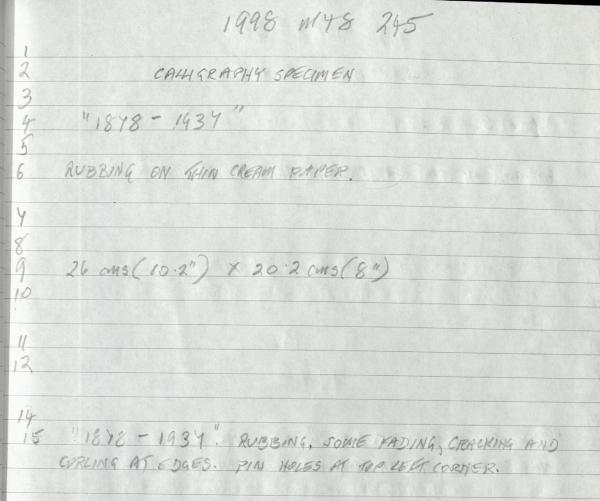 1998 M78 245
1
2 CALLIGRAPHY SPECIMEN
3
4 "1878 - 1937"
5
6 RUBBING ON THIN CREAM PAPER.
7
8
9 26 cms (10·2") x 20·2 cms (8")
10
11
12
14
15 "1878 - 1937". RUBBING, SOME FADING, CRACKING AND
CURLING AT EDGES. PIN HOLES AT TOP LEFT CORNER.